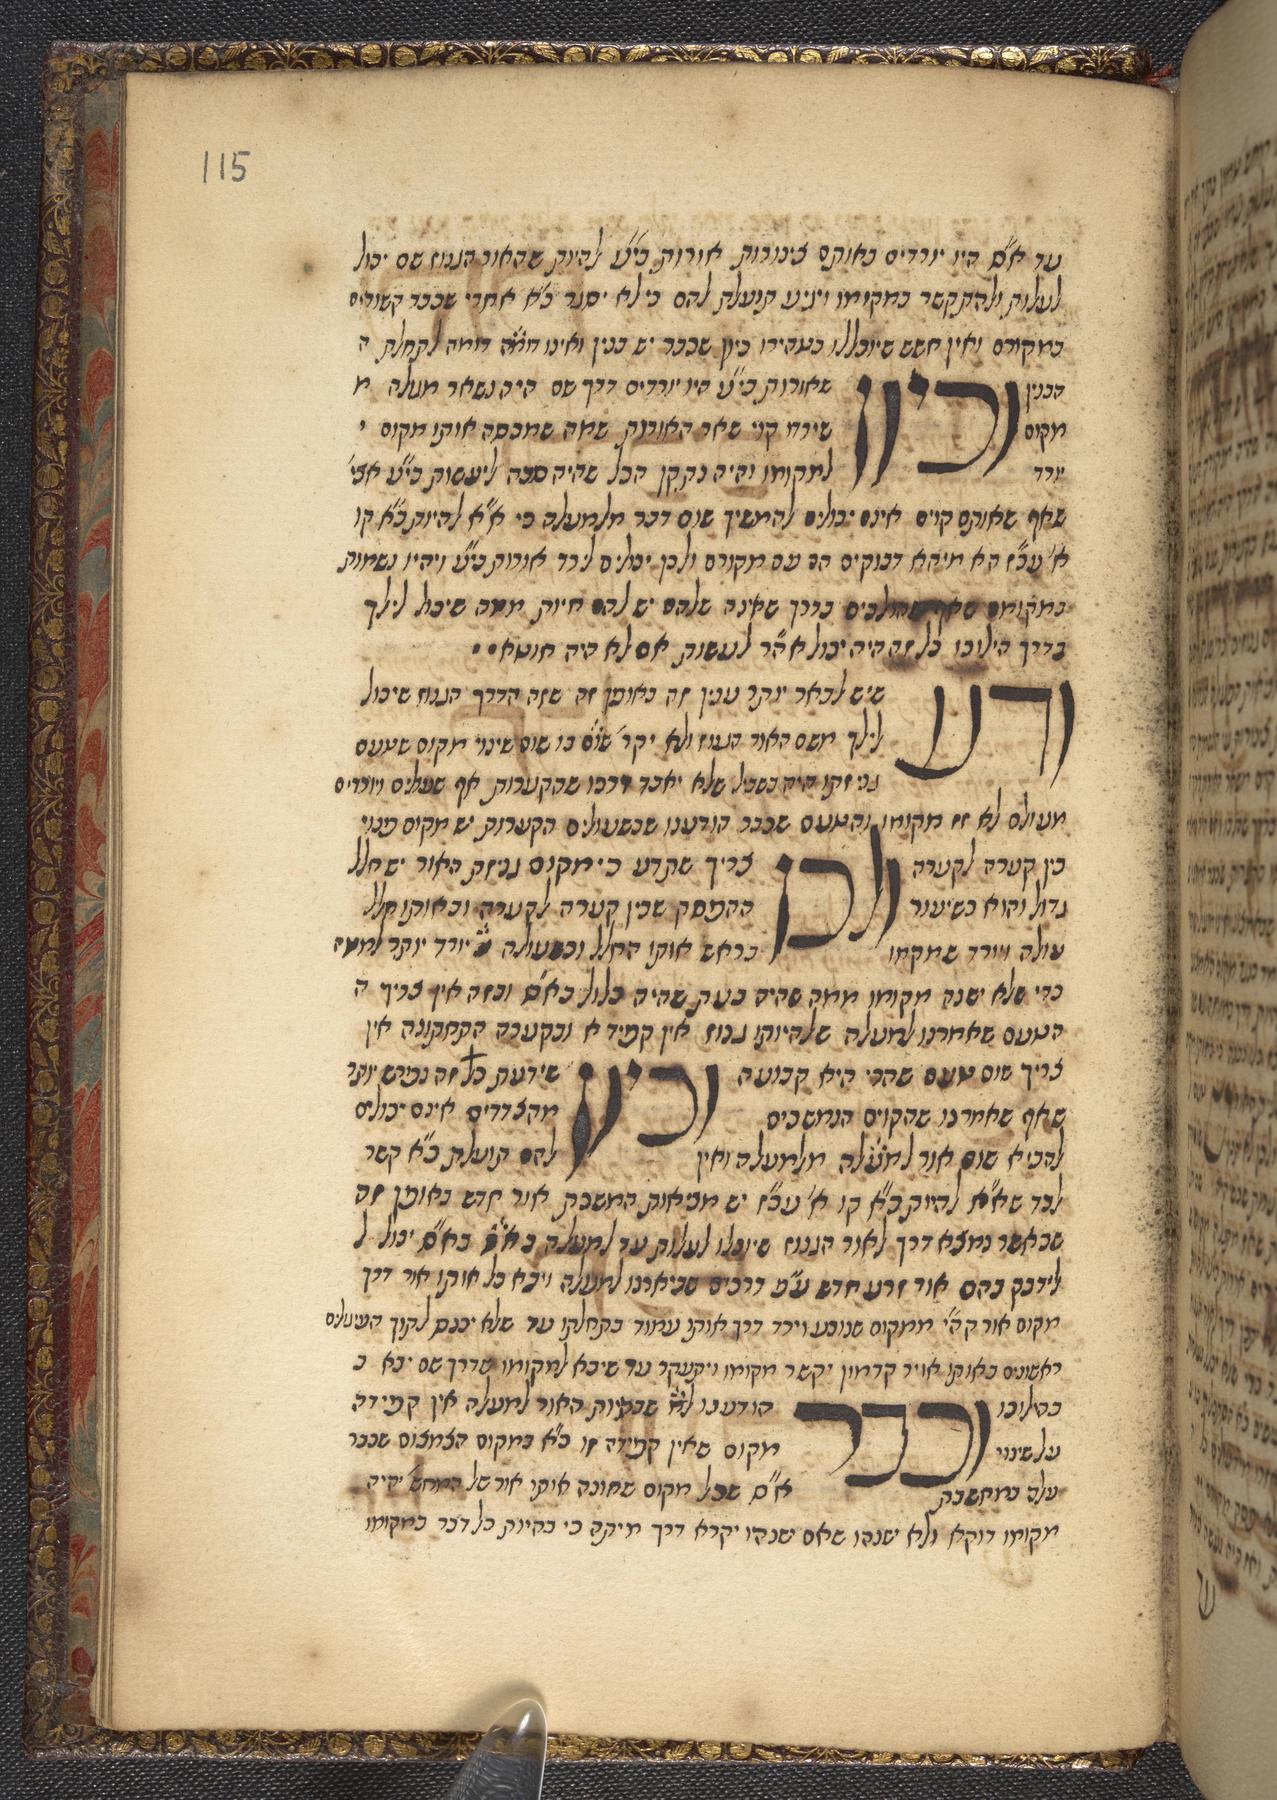 115
עד א"ם היו יורדים באותם צינורות אורות כי"ע להיות שהאור הגנוז שם יכול
לעלות ולהתקשר במקומו ויגיע תועלת להם כי לא יסגר כ"א אחרי שכבר קשורים
במקורם ואין חשש שיוכללו כיון שכבר יש בנין ואינו דומה לתחלת ה
הבנין וכיון שאורות כי"ע היו יורדים דרך שם היה נשאר מעלה מ
מקום שירח קני שאר האורות שמה שמכסה אותו מקום י
יורד למקומו והיה נתקן הכל שהיה סבה ליעשות כי"ע אצי'
שאף שאותם קוים אינם יכולים להמשיך שום דבר מלמעלה כי א"א להיות כ"א קו
א' עכ"ז הא מיהא דבוקים הם עם מקורם ולכן יכולים לירד אורות כי"ע ויהיו נשמות
במקומם שאף שהולכים בדרך שאינה שלהם יש להם חיות ממה שיכול לילך
בדרך הילוכו כל זה היה יכול אה"ר לעשות אם לא היה חוטא
ודע שיש לבאר יותר ענין זה באומן זה שזה הדרך הגנוז שיכול
לילך משם האור הגנוז ולא יקר' שום בו שום שינוי מקום שטעם
גניזתו היה בשביל שלא יאבד דרכו שהקערות אף שעולים ויורדים
מעולם לא זז מקומו והטעם שכבר הודענו שכשעולים הקערות יש מקום פנוי
בין קערה לקערה ולכן צריך שתדע כי מקום גניזת האור יש חלל
גדול והוא כשיעור ההפסק שבין קערה לקערה ובאותו חלל
עולה ויורד שמקומו בראש אותו החלל וכשעולה יורד יותר למטה
כדי שלא ישנה מקומו ממה שהיה בעת שהיה כלול בא"ם ובזה אין צריך ה
הטעם שאמרנו למעלה שלהיותו גנוז אין קפידא ובקערה התחתונה אין
צריך שום טעם שהרי היא קבועה וכיון שידעת כל זה נפרש יותר
שאף שאמרנו שהקוים הנמשכים מהצדדים אינם יכולים
להביא שום אור למטה מלמעלה ואין להם תועלת כ"א קשר
לבד שא"א להיות כ"א קו א' עכ"ז יש מציאות המשכת אור חדש באומן זה
שכאשר נמצא דרך לאור הגנוז שיוכלו לעלות עד למעלה בא"ם יכול ל
לידבק בהם אור זרע חדש ע"פ דרכים שביארנו למעלה ויבא כל אותו אור דרך
מקום אור קה"י ממקום שנובע וירד דרך אותו עמוד בתחלתו עד שלא יכנס לתוך העיגולים
ראשונים באותו אויר קדמון יקשר מקומו ויתעקר עד שיבא למקומו שדרך שם יבא כ
בהילוכו וכבר הודענו שבעיות האור למעלה אין קפידה
על שינוי מקום שאין קפידה זו כ"א במקום הצמצום שכבר
עלה במחשבת א"ס שכל מקום שחונה אותו אור של המחש' יהיה
מקומו דוקא ולא ישנהו שאם ישנהו יקרא דרך מיתה כי בהיות כל דבר במקומו